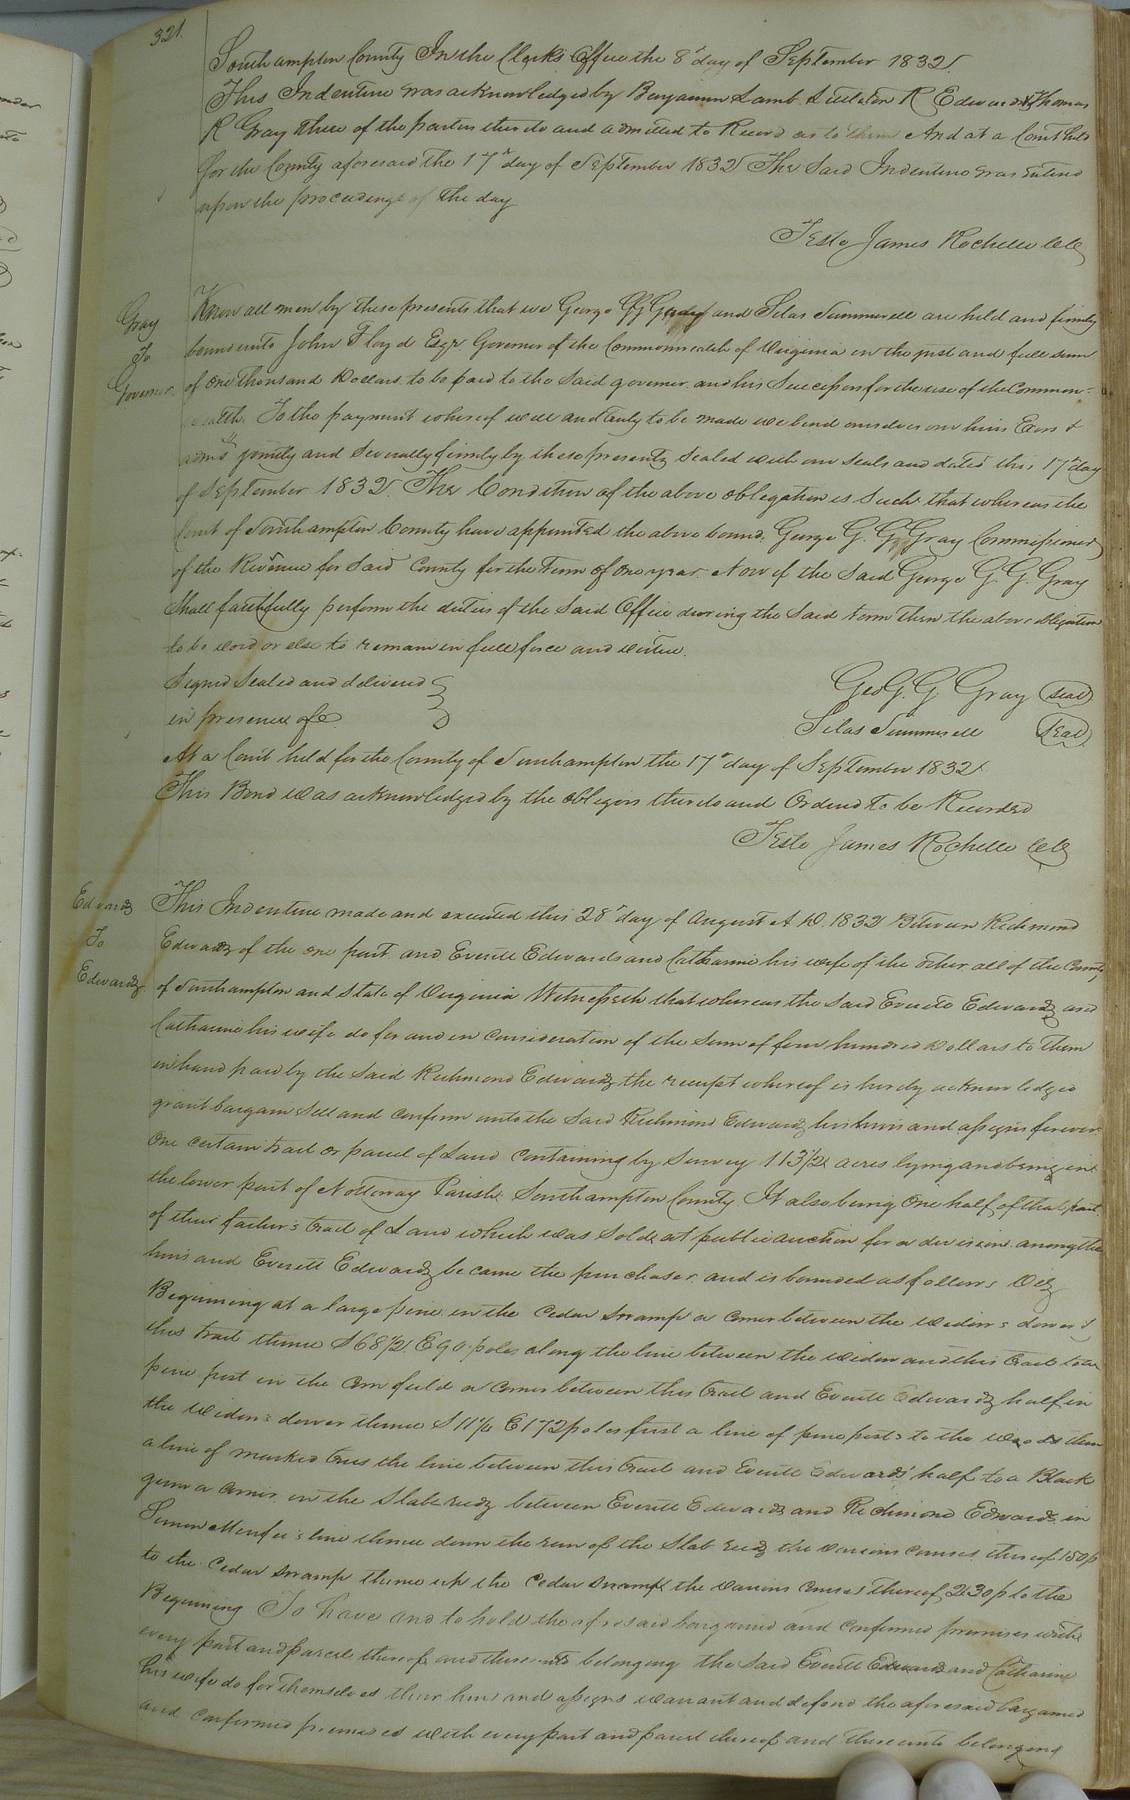 321.
Southampton County In the Clerks Office the 8th day of September 1832.
This Indenture was acknowledged by Benjamin Lamb Littleton R Edwards & Thomas
R Gray three of the parties thereto and admitted to Record as to them And at a Court held
for the County aforesaid the 17th day of September 1832 The Said Indenture was entered
upon the proceedings of the day
Teste James Rochelle CC
Gray
To
Governor
Know all men by these presents that we George G. G. Gray and Silas Summerell are held and firmly
bound unto John Floyd Esqr Governor of the Commonwealth of Virginia in the just and full sum
of one thousand Dollars. to be paid to the said governor. and his Successors for the use of the Common-
wealth. To the payment whereof well and truly to be made we bind ourselves our heirs Exrs &
admrs jointly and severally firmly by these presents Sealed with our Seals and dated this 17th day
of September 1832. The Condition of the above obligation is such. that whereas the
Court of Southampton County have appointed the above bound. George G. G. Gray Commissioner
of the Revenue for Said County for the Term of one year. Now if the Said George G. G. Gray
Shall faithfully perform the duties of the Said Office during the Said term then the above obligation
to be void or else to remain in full force and virtue.
Signed Sealed and delivered
in presence of
Geo G. G Gray (seal)
Silas Summerell (Seal)
At a Court held for the County of Southampton the 17th day of September 1832.
This Bond was acknowledged by the obligors thereto and Ordered to be Recorded
Teste James Rochelle CC
Edwards
To
Edwards
This Indenture made and executed this 28th day of August A. D. 1832 Between Richmond
Edwards of the one part and Everitt Edwards and Catharine his wife of the other all of the County
of Southampton and State of Virginia Witnesseth that whereas the Said Everitt Edwards and
Catharine his wife do for and in consideration of the Sum of four hundred dollars to them
in hand paid by the Said Richmond Edwards the receipt whereof is hereby acknowledged
grant bargain Sell and confirm unto the Said Richmond Edwards his heirs and assigns forever
One certain tract or parcel of Land containing by Survey 113 1/2 acres lying and being in
the lower part of Nottoway Parish Southampton County. It also being One half of that part
of their father's tract of Land which was Sold at public auction for a division among the
heirs and Everitt Edwards became the purchaser. and is bounded as follows Viz
Beginning at a large pine in the Cedar Swamp a corner between the widow's dower &
this tract thence S 68 1/2 E 90 poles along the line between the widow and this tract to a
pine post in the corn field a corner between this tract and Everitt Edwards half in
the widow's dower thence S 11 1/2 E 172 poles first a line of pine posts to the woods then
a line of marked trees the line between this tract and Everitt Edwards' half to a Black
gum a corner in the Slab reedy between Everitt Edwards and Richmond Edwards in
line thence down the run of the Slab reedy the various courses thereof 150 p
to the Cedar Swamp thence up the Cedar Swamp the various courses thereof 230 p to the
Beginning To have and to hold the aforesaid bargained and confirmed premises with
every part and parcel thereof and there unto belonging the said Everitt Edwards and Catharine
his wife do for themselves their heirs and assigns warrant and defend the aforesaid bargained
and confirmed premises with every part and parcel thereof and there unto belonging